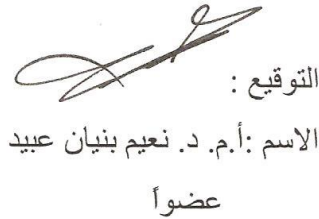 التوقيع :
الاسم :أ.م. د. نعيم بنيان عبيد
عضواً